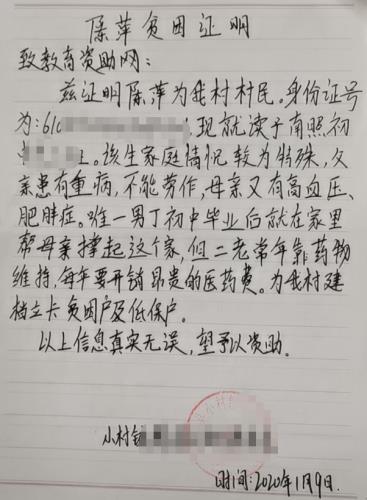 陈萍贫困证明
致教育资助网：
兹证明陈萍为我村村民。身份证号
为：610 ，现就读于南照初
。该生家庭情况较为特殊，父
亲患有重病，不能劳作，母亲又有高血压、
肥胖症。唯一男丁初中毕业后就在家里
帮母亲撑起这个家，但二老常年靠药物
维持，每年要开销昂贵的医药费。为我村建
档立卡贫困户及低保户。
以上信息真实无误，望予以资助。
小村镇
时间：2020年1月9日.